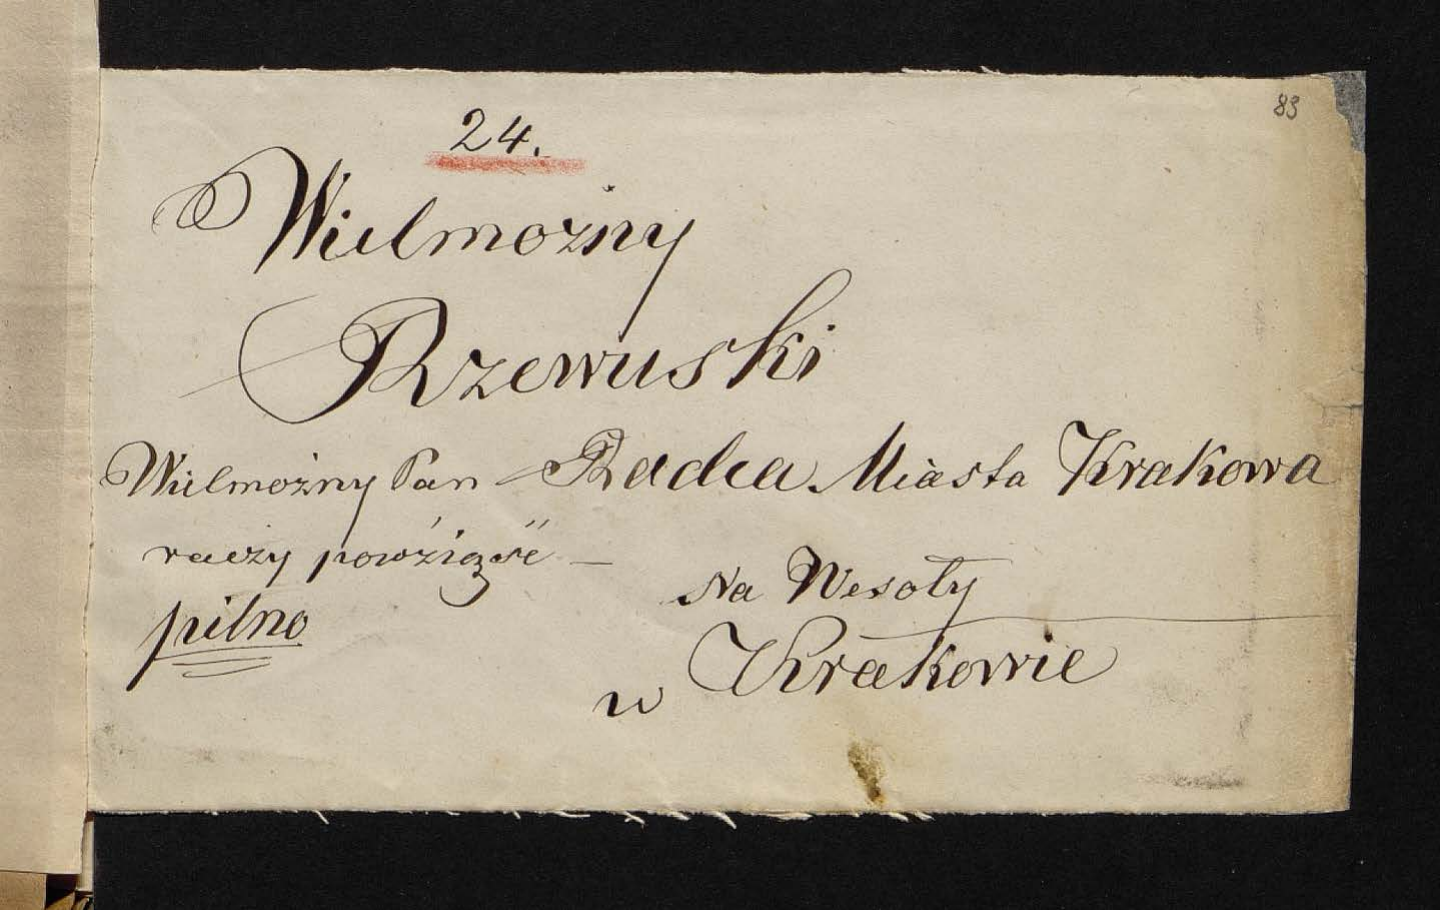 83
24.
Wielmożny
Rzewuski
Wielmożny Pan Radca Miasta Krakowa
raczy powźiąść —
pilno
Na Wesoły
w Krakowie